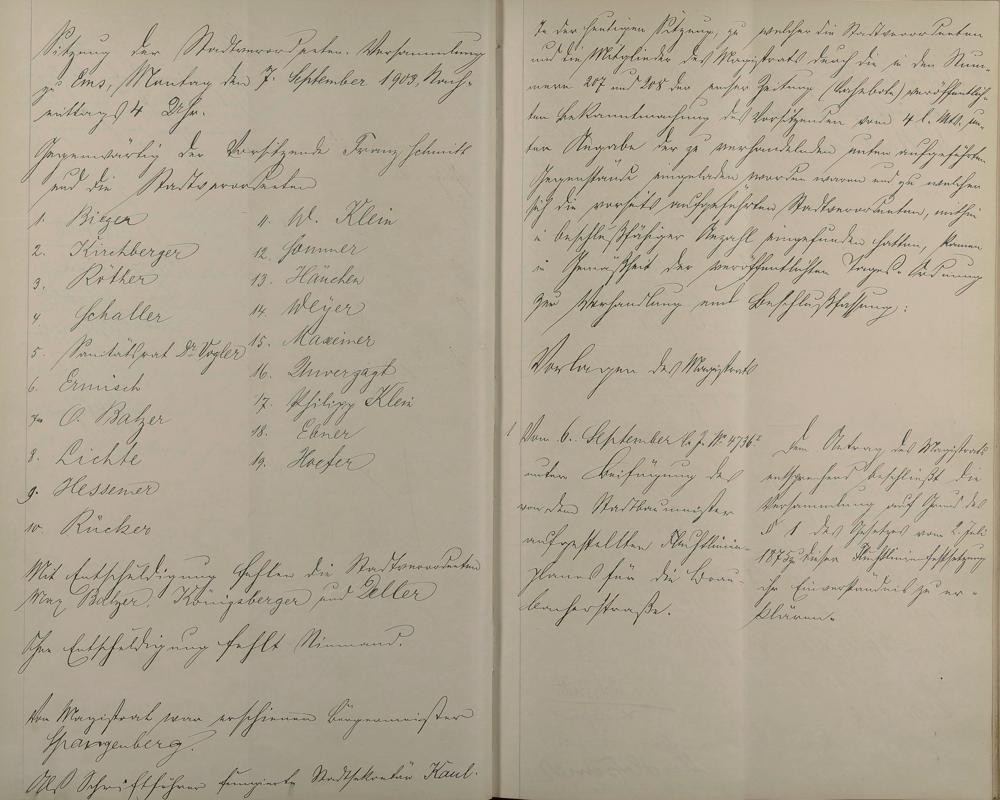 Sitzung der Stadtverordneten-Versammlung
zu Ems, Montag den 7. September 1903, Nach-
mittags 4 Uhr.
Gegenwärtig der Vorsitzende Franz Schmitt
und die Stadtverordneten
1. Bieger
2. Kirchberger
3. Röther
4. Schaller
5. Sanitätsrat Dr. Vogler
6. Ermisch
7. O. Balzer
8. Lichte
9. Hessemer
10. Rücker
11. W. Klein
12. Sommer
13. Hänchen
14. Weyer
15. Maxeiner
16. Unverzagt
17. Philipp Klein
18. Ebner
19. Hoefer
Mit Entschuldigung fehlen die Stadtverordneten
Max Balzer, Königsberger und Zeller
Ohne Entschuldigung fehlt Niemand.
Vom Magistrat war erschienen Bürgermeister
Spangenberg.
Als Schriftführer fungierte Stadtsekretär Kaul.
In der heutigen Sitzung, zu welcher die Stadtverordneten
und die Mitglieder des Magistrats durch die in den Num-
mern 207 und 208 der Emser Zeitung (Lahnbote) veröffentlich-
ten Bekanntmachung des Vorsitzenden vom 4 l. Mts. un-
ter Angabe der zu verhandelnden unten aufgeführten
Gegenstände eingeladen worden waren und zu welcher
sich die vorseits aufgeführten Stadtverordneten, mithin
in beschlußfähiger Anzahl eingefunden hatten, kamen
in Gemäßheit der veröffentlichten Tages-Ordnung
zur Verhandlung und Beschlußfassung:
Vorlagen des Magistrats
1 Vom 6. September l. J. No 4736
unter Beifügung des
von dem Stadtbaumeister
aufgestellten Fluchtlinien-
planes für die Brau-
bacherstraße.
Dem Antrag des Magistrats
entsprechend beschließt die
Versammlung auf Grund des
§ 1 des Gesetzes vom 2. Juli
1875 zu dieser Fluchtlinienfestsetzung
ihr Einverständnis zu er-
klären.